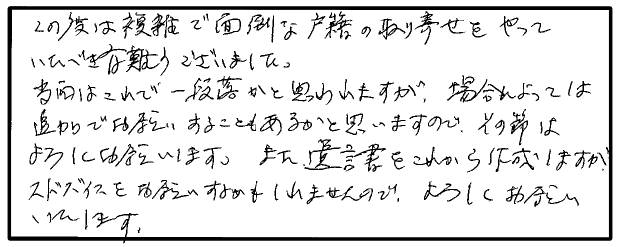 この度は複雑で面倒な戸籍の取り寄せをやって
いただき有難うございました。
当面はこれで一段落かと思われますが、場合によっては
追加でお願いすることもあるかと思いますので、その節は
よろしくお願いします。また遺言書をこれから作成しますが、
アドバイスをお願いするかもしれませんので、よろしくお願い
いたします。